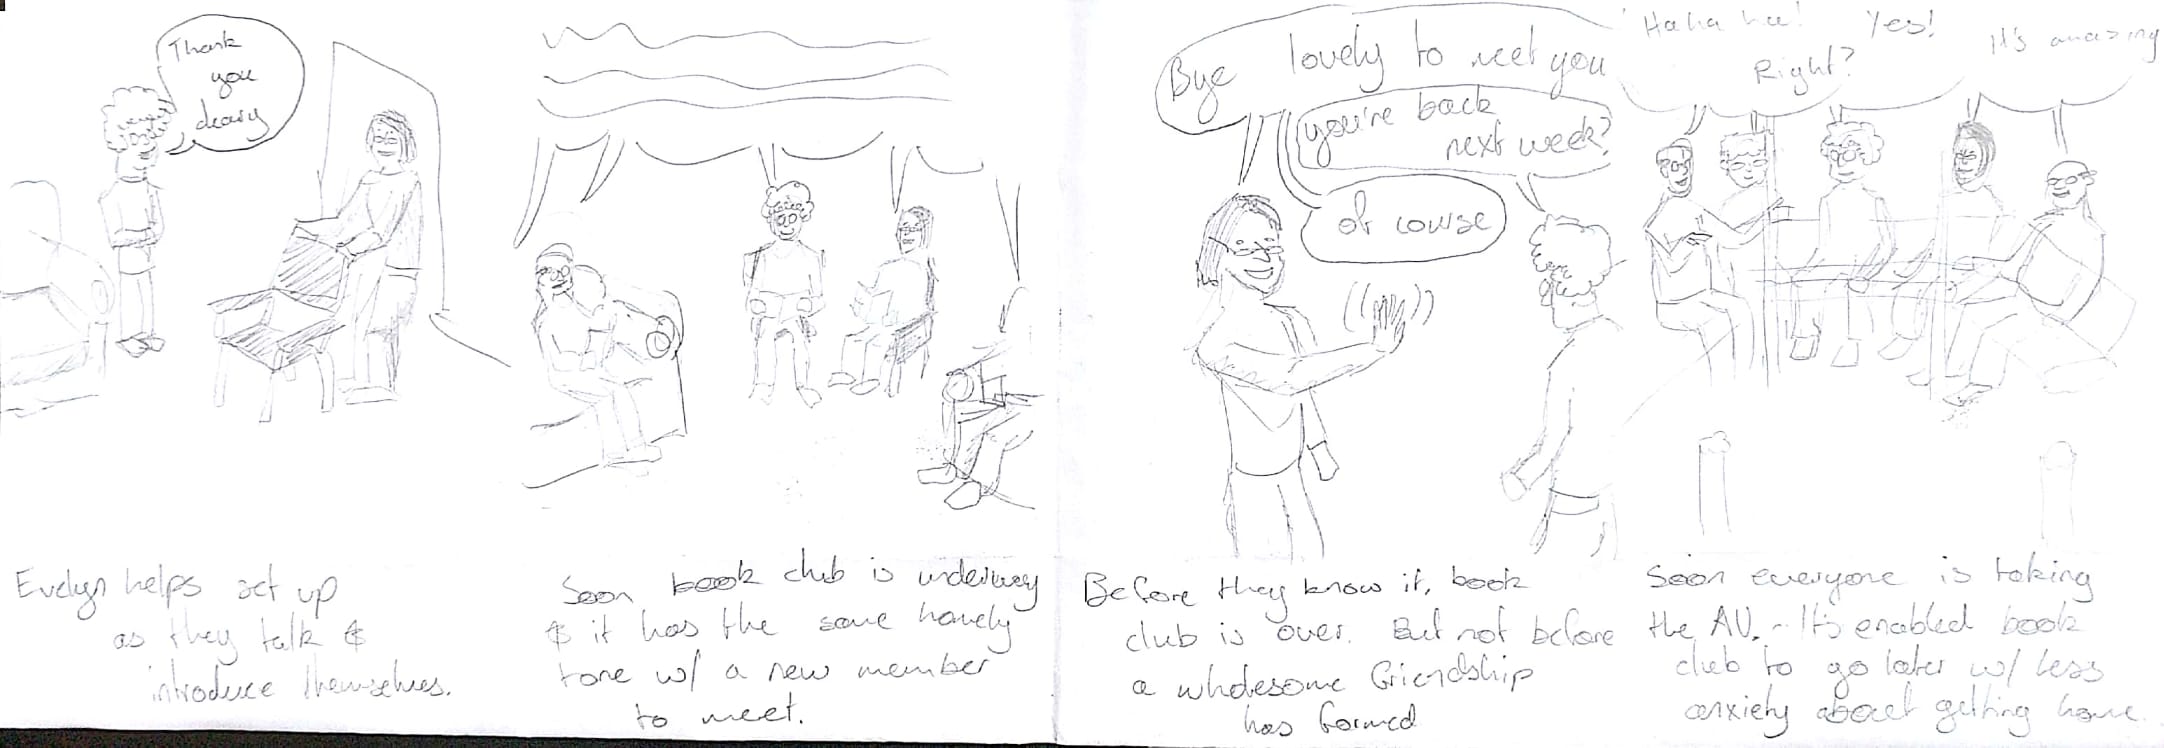 Thank
you
deary
Evelyn helps set up
as they talk &
introduce themselves.
Soon book club is underway
& it has the same homely
tone w/ a new member
to meet.
Bye
lovely to meet you
you're back
next week?
of course
Before they know it, book
club is over. But not before
a wholesome friendship
has formed
Haha hee!
Right?
Yes!
It's amazing
Soon everyone is taking
the AV. It's enabled book
club to go later w/ less
anxiety about getting home.